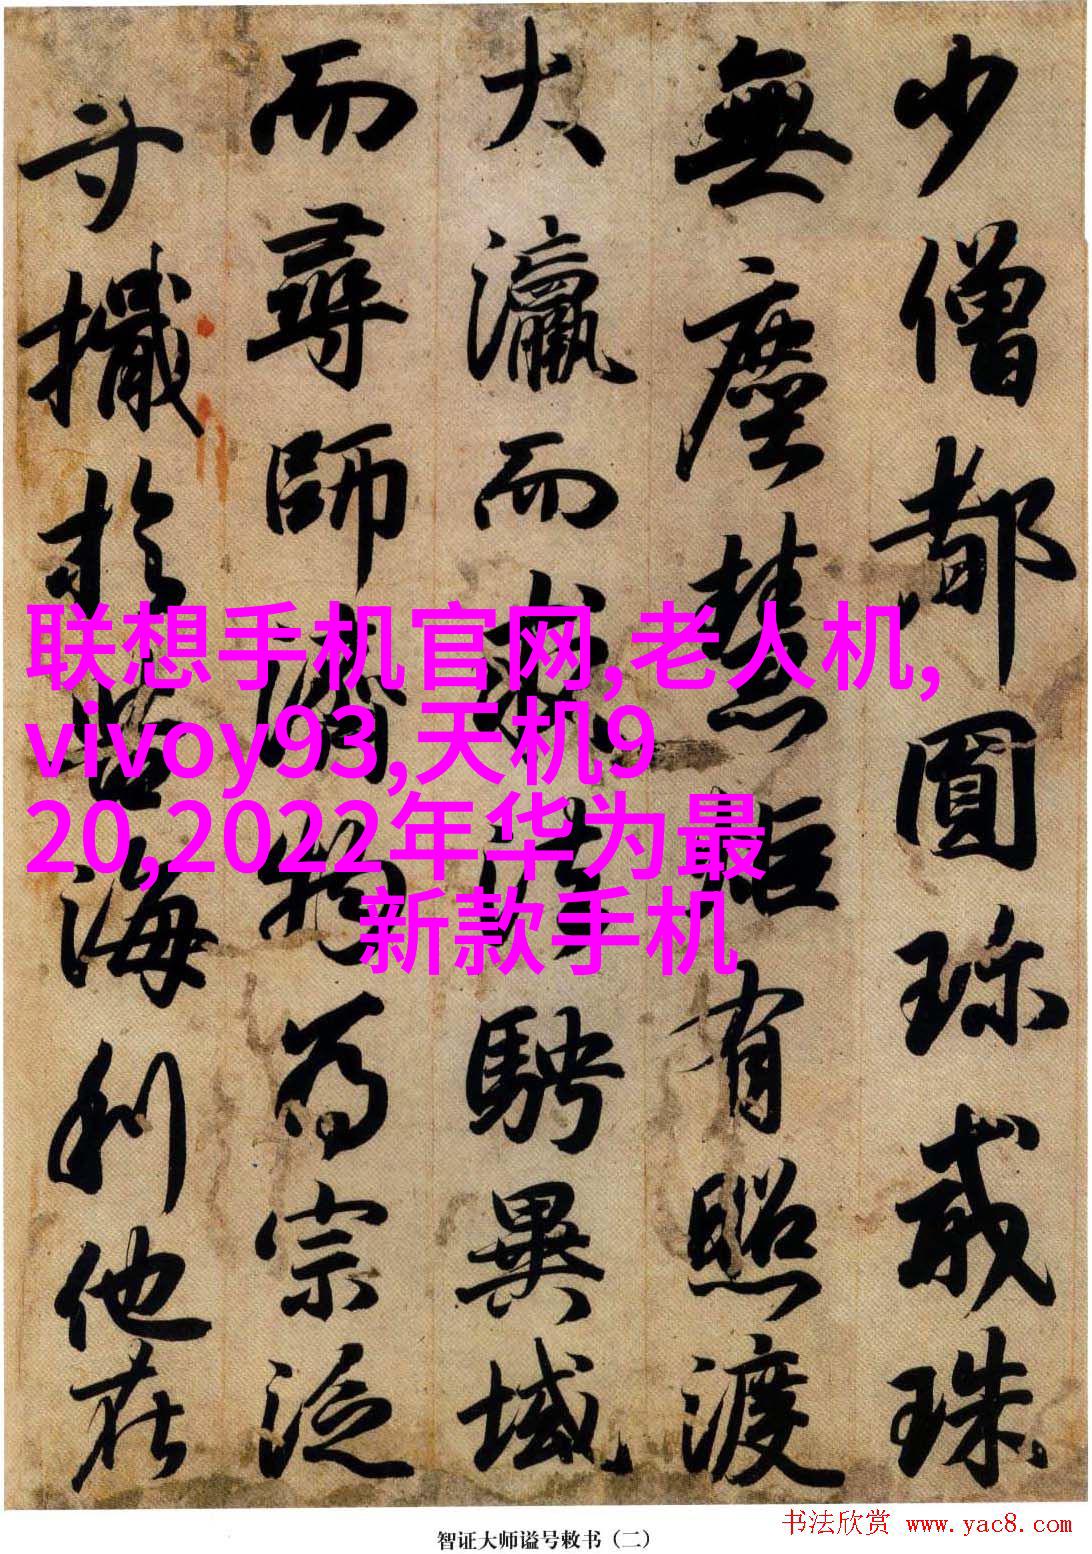 少僧都圓珍戒珠
無塵慧炬有照渡
大瀛而求法騁異域
而尋師濟物為宗泛
寸檝於苦海利他在
联想手机官网,老人机,
vivoy93,天机9
20,2022年华为最
新款手机
智证大师谥号敕书（二）
书法欣赏 www.yac8.com